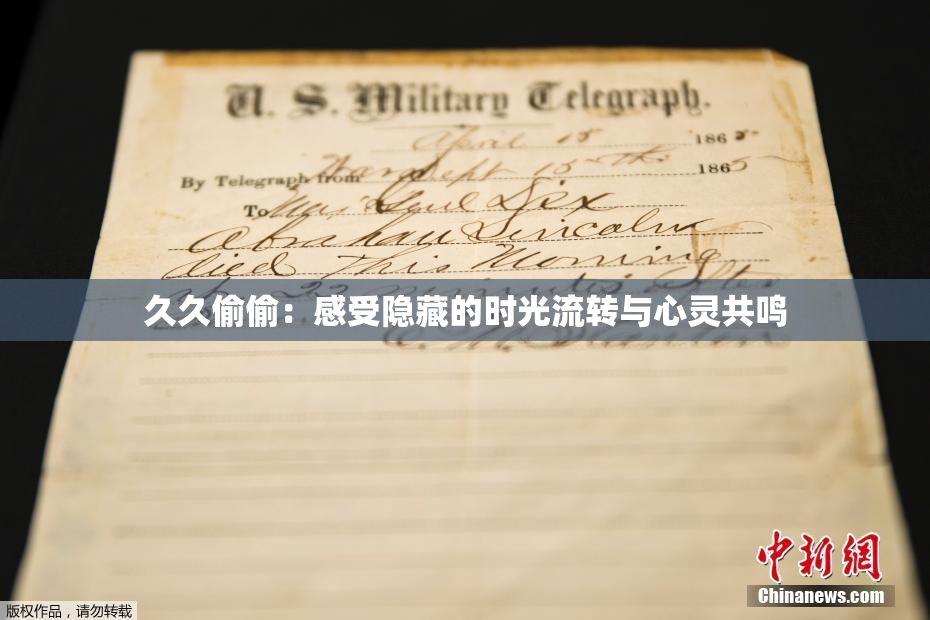 U. S. Military Telegraph.
April 15 1865
By Telegraph from War Dept 15th 1865
To Maj Genl Dix
Abraham Lincoln
died This Morning
22 minutes after
久久偷偷：感受隐藏的时光流转与心灵共鸣
E. M. Stanton
中新網
Chinanews.com
版权作品，请勿转载